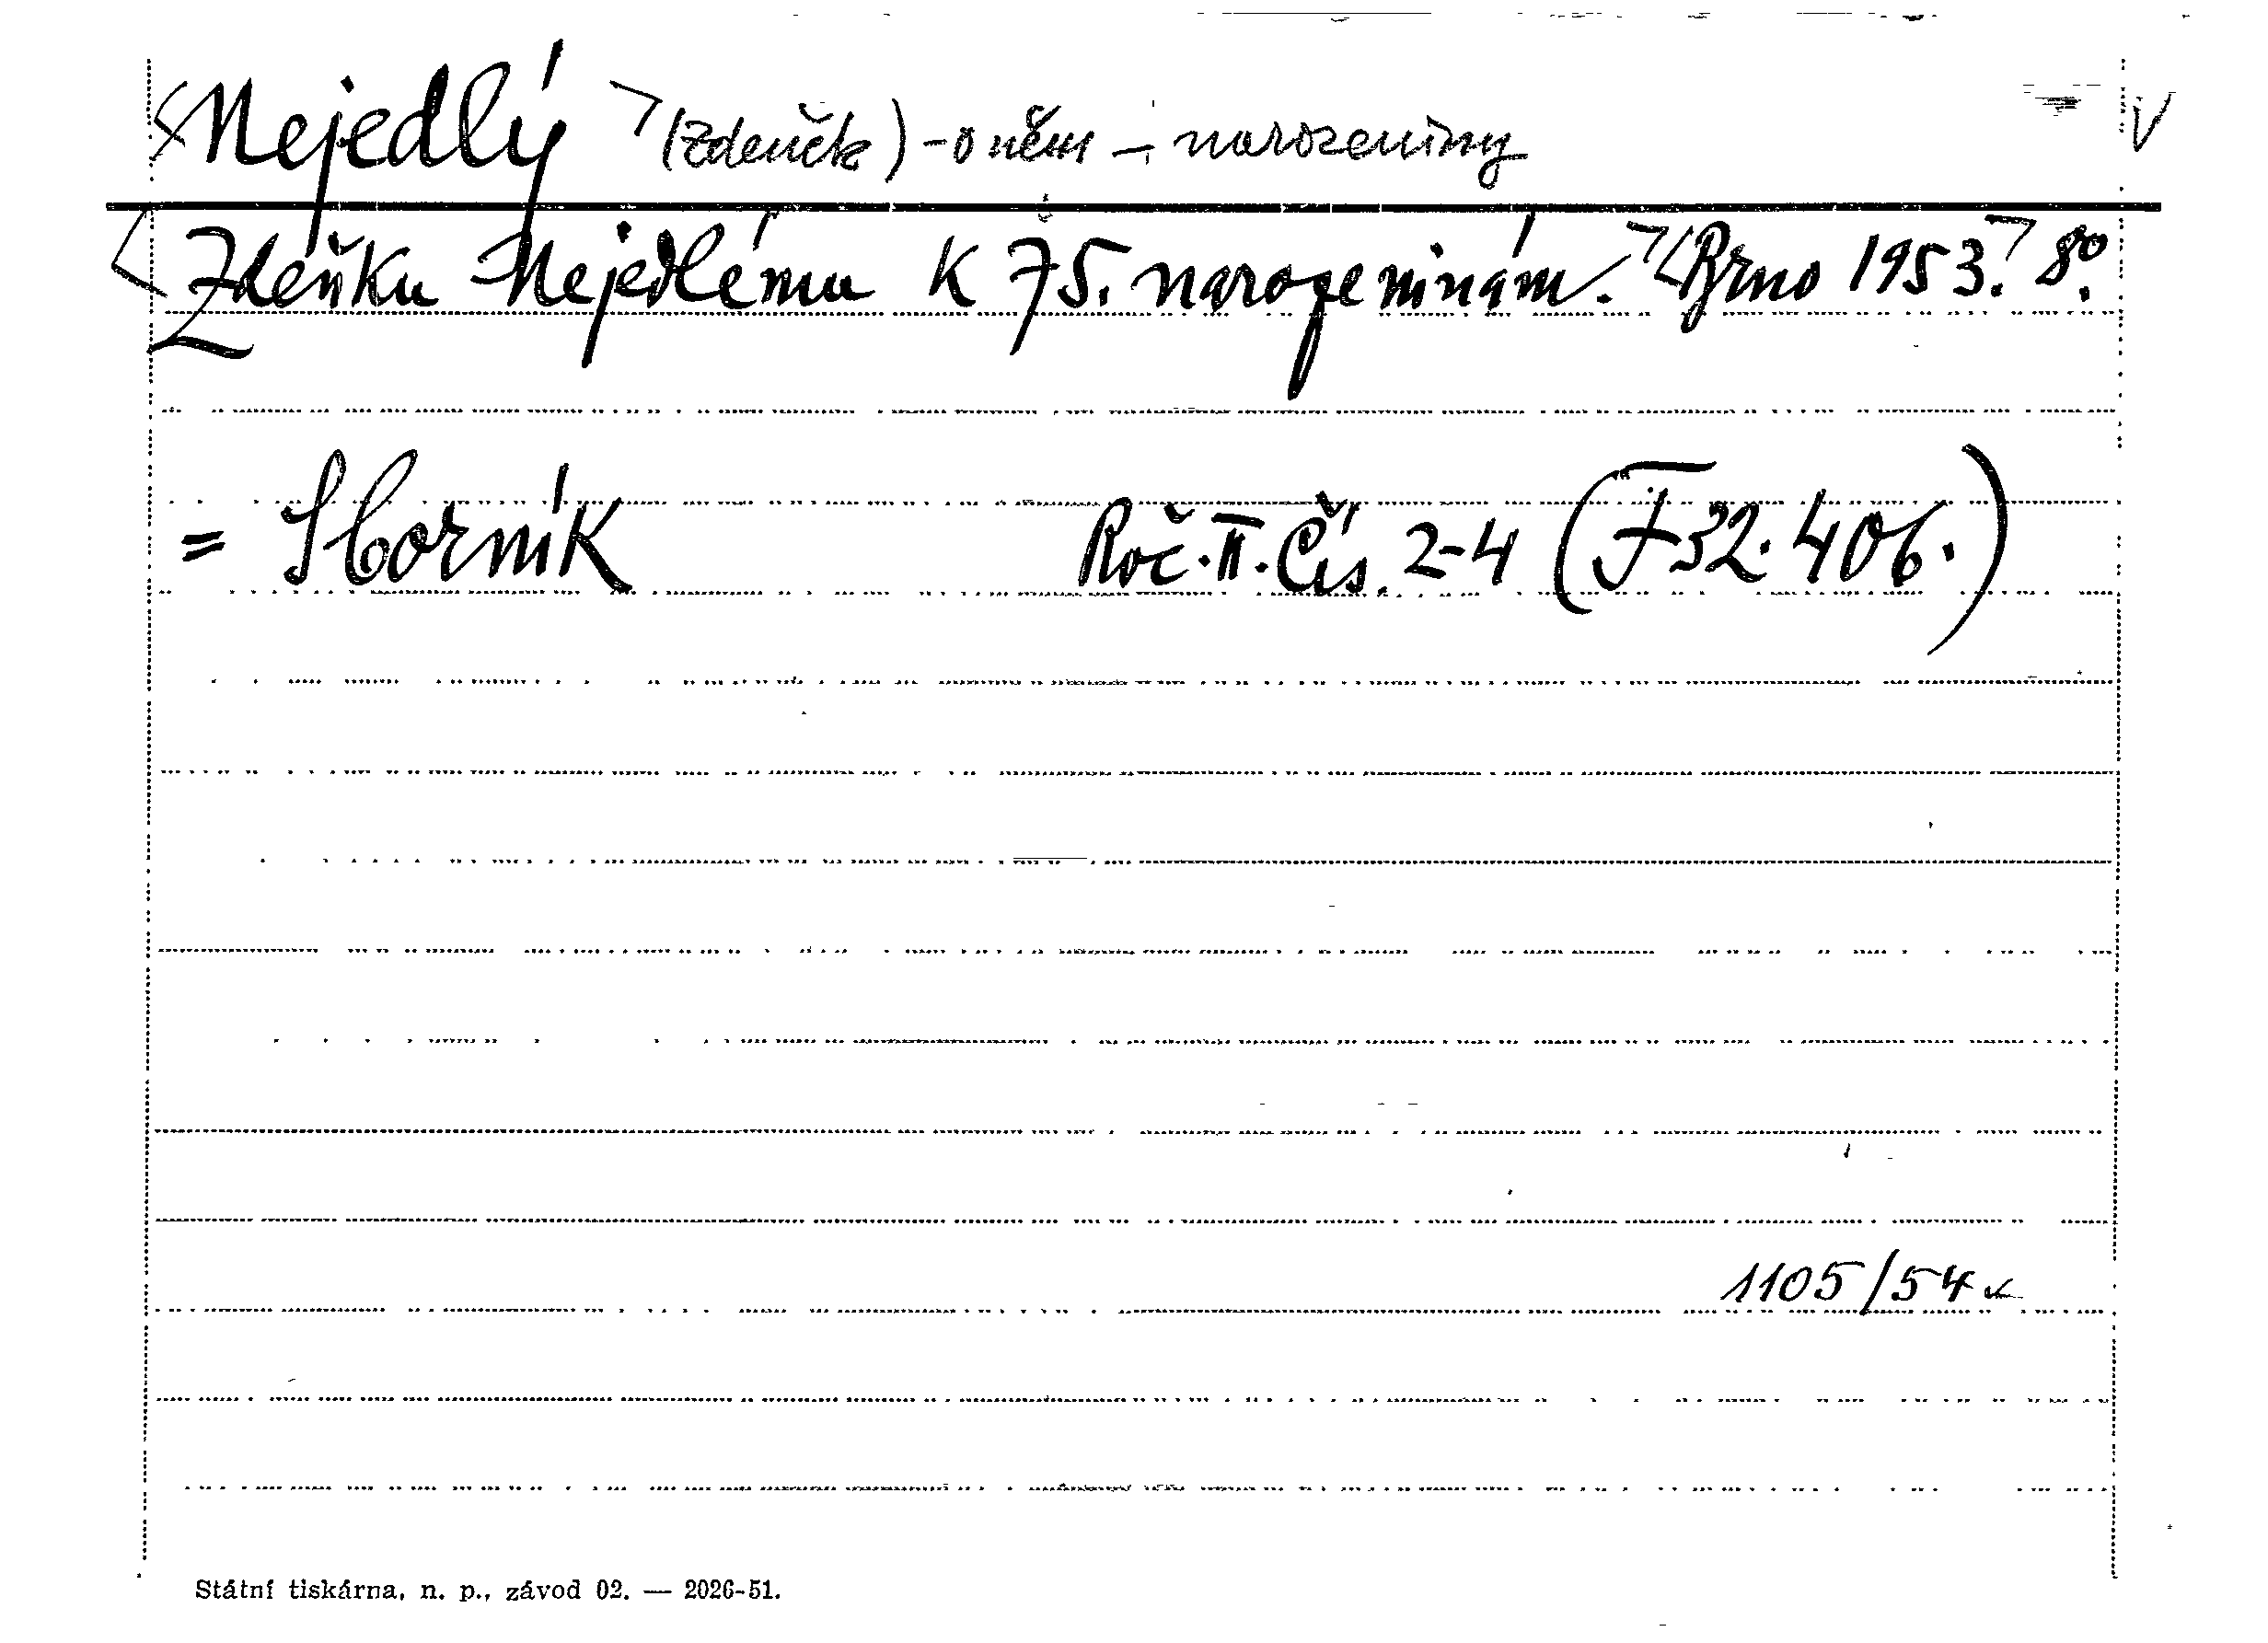 <Nejedlý> (Zdeněk) - o něm - narozeniny V
<Zdeňku Nejedlému k 75. narozeninám.> <Brno 1953.> 8°.
= Sborník Roč. II. Čís. 2-4 (F 32.406.)
1105/54
Státní tiskárna, n. p., závod 02. — 2026-51.